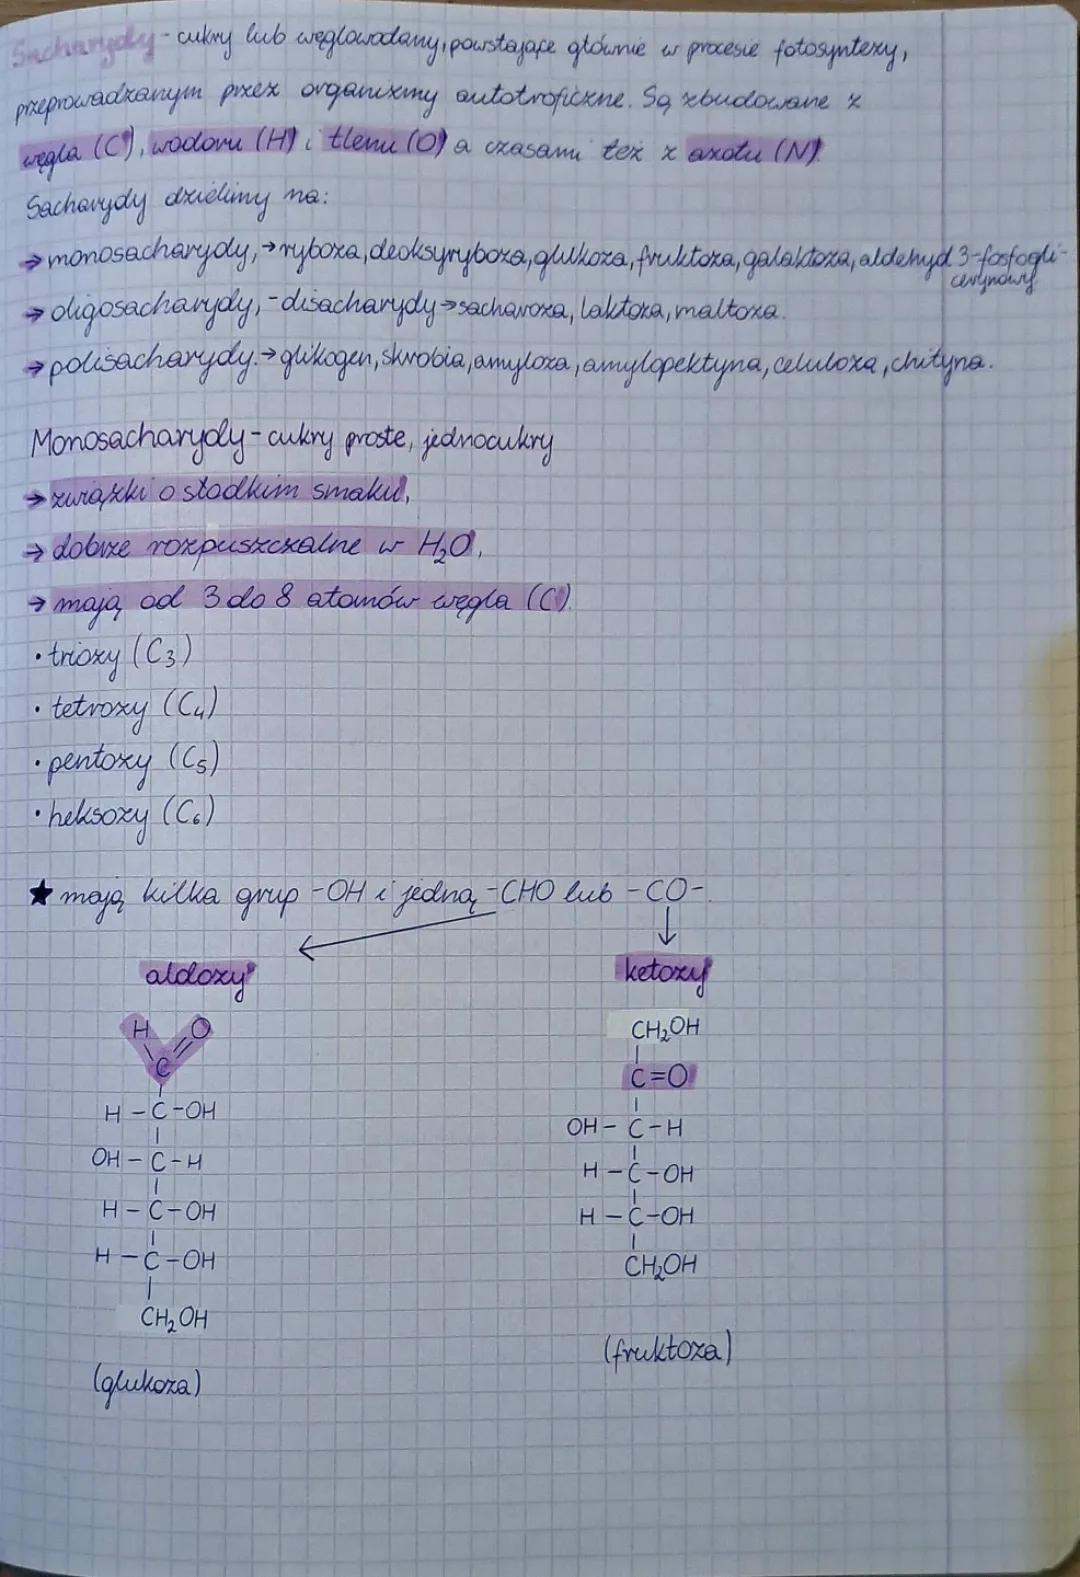 Sacharydy - cukry lub węglowodany, powstające głównie w procesie fotosyntezy,
przeprowadzanym przez organizmy autotroficzne. Są zbudowane z
węgla (C), wodoru (H) i tlenu (O) a czasami też z azotu (N).
Sacharydy dzielimy na:
→ monosacharydy, → ryboza, deoksyryboza, glukoza, fruktoza, galaktoza, aldehyd 3-fosfogli-
cerynowy
→ oligosacharydy, - disacharydy → sacharoza, laktoza, maltoza.
→ polisacharydy. → glikogen, skrobia, amyloza, amylopektyna, celuloza, chityna.
Monosacharydy - cukry proste, jednocukry
→ związki o słodkim smaku,
→ dobrze rozpuszczalne w H₂O,
→ mają od 3 do 8 atomów węgla (C).
• triozy (C₃)
• tetrozy (C₄)
• pentozy (C₅)
• heksozy (C₆)
★ mają kilka grup -OH i jedną -CHO lub -CO-.
aldozy
H O
C
H-C-OH
OH-C-H
H-C-OH
H-C-OH
CH₂OH
(glukoza)
ketozy
CH₂OH
C=O
OH-C-H
H-C-OH
H-C-OH
CH₂OH
(fruktoza)